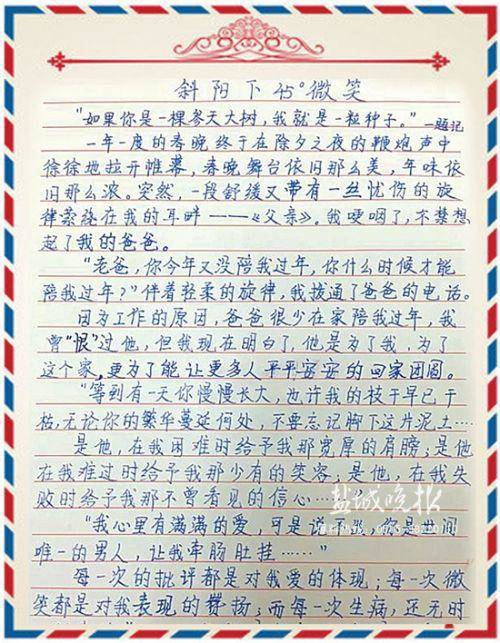 斜阳下45°微笑
“如果你是一棵参天大树，我就是一粒种子。”—题记
一年一度的春晚终于在除夕之夜的鞭炮声中
徐徐地拉开帷幕，春晚舞台依旧那么美，年味依
旧那么浓。突然，一段舒缓又带有一丝忧伤的旋
律萦绕在我的耳畔——《父亲》。我哽咽了，不禁想
起了我的爸爸。
“老爸，你今年又没陪我过年，你什么时候才能
陪我过年？”伴着轻柔的旋律，我拨通了爸爸的电话。
因为工作的原因，爸爸很少在家陪我过年，我
曾“恨”过他，但我现在明白了，他是为了我，为了
这个家，更为了能让更多人平平安安的回家团圆。
“等到有一天你慢慢长大，也许我的枝干早已干
枯，无论你的繁华蔓延何处，不要忘记脚下这片泥土……
是他，在我困难时给予我那宽厚的肩膀；是他
在我难过时给予我那少有的笑容；是他，在我失
败时给予我那不曾看见的信心……
盐城晚报
“我心里有满满的爱，可是说不出，你是世间
唯一的男人，让我牢肠肚挂……”
每一次的批评都是对我爱的体现；每一次微
笑都是对我表现的赞扬；而每一次生病，还无时